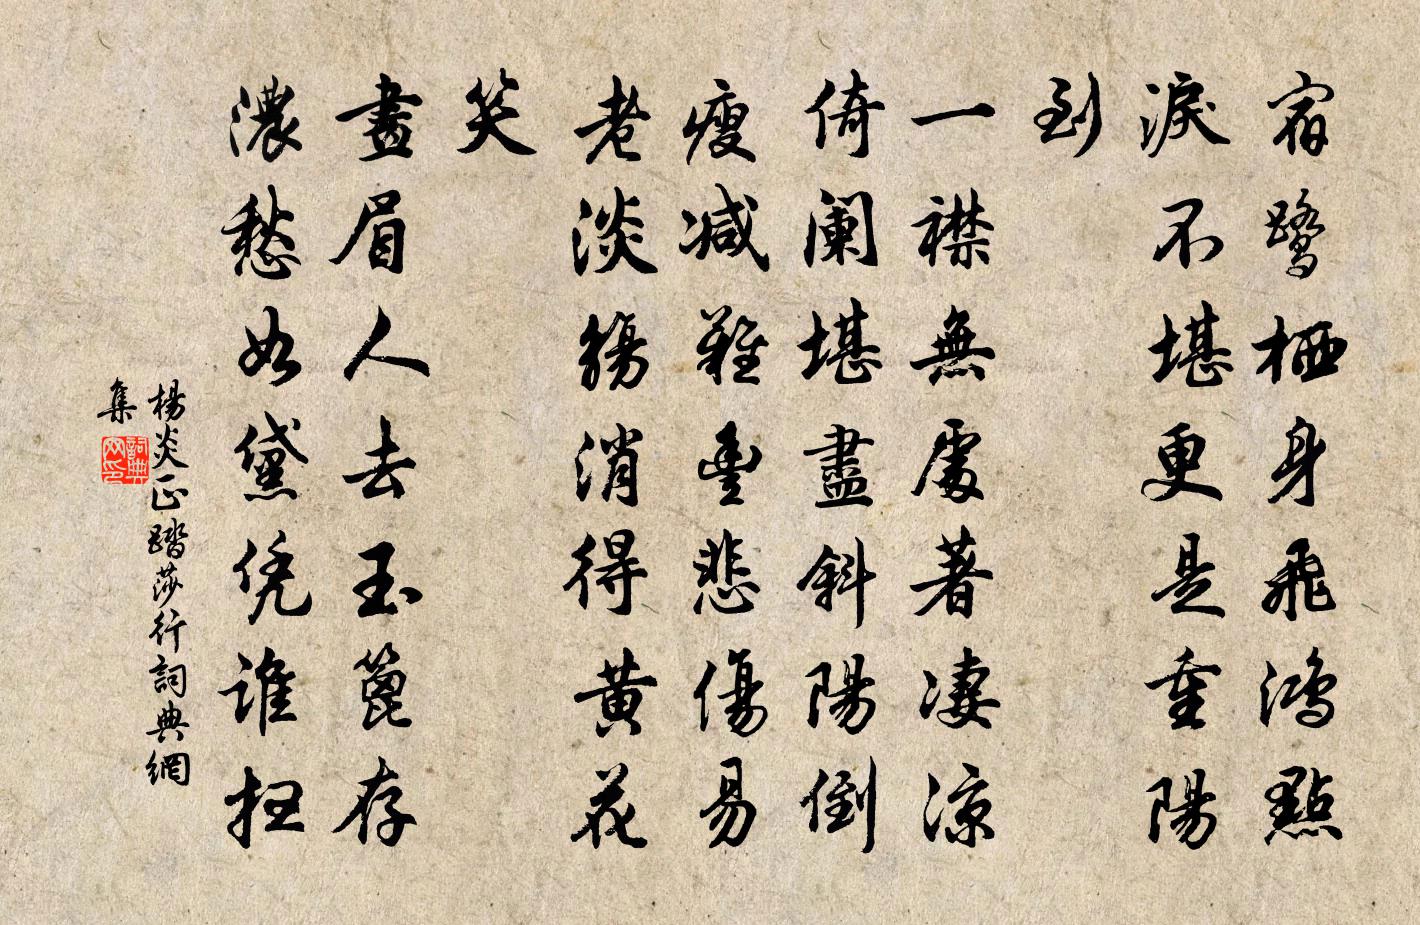 宿鷺栖身飛鴻點
淚不堪更是重陽
到
一襟無處著淒涼
倚闌堪盡斜陽倒
瘦減難豐悲傷易
老淡觴消得黃花
笑
畫眉人去玉篦存
濃愁如黛凭誰扫
楊炎正踏莎行詞典網
集
詞典网印